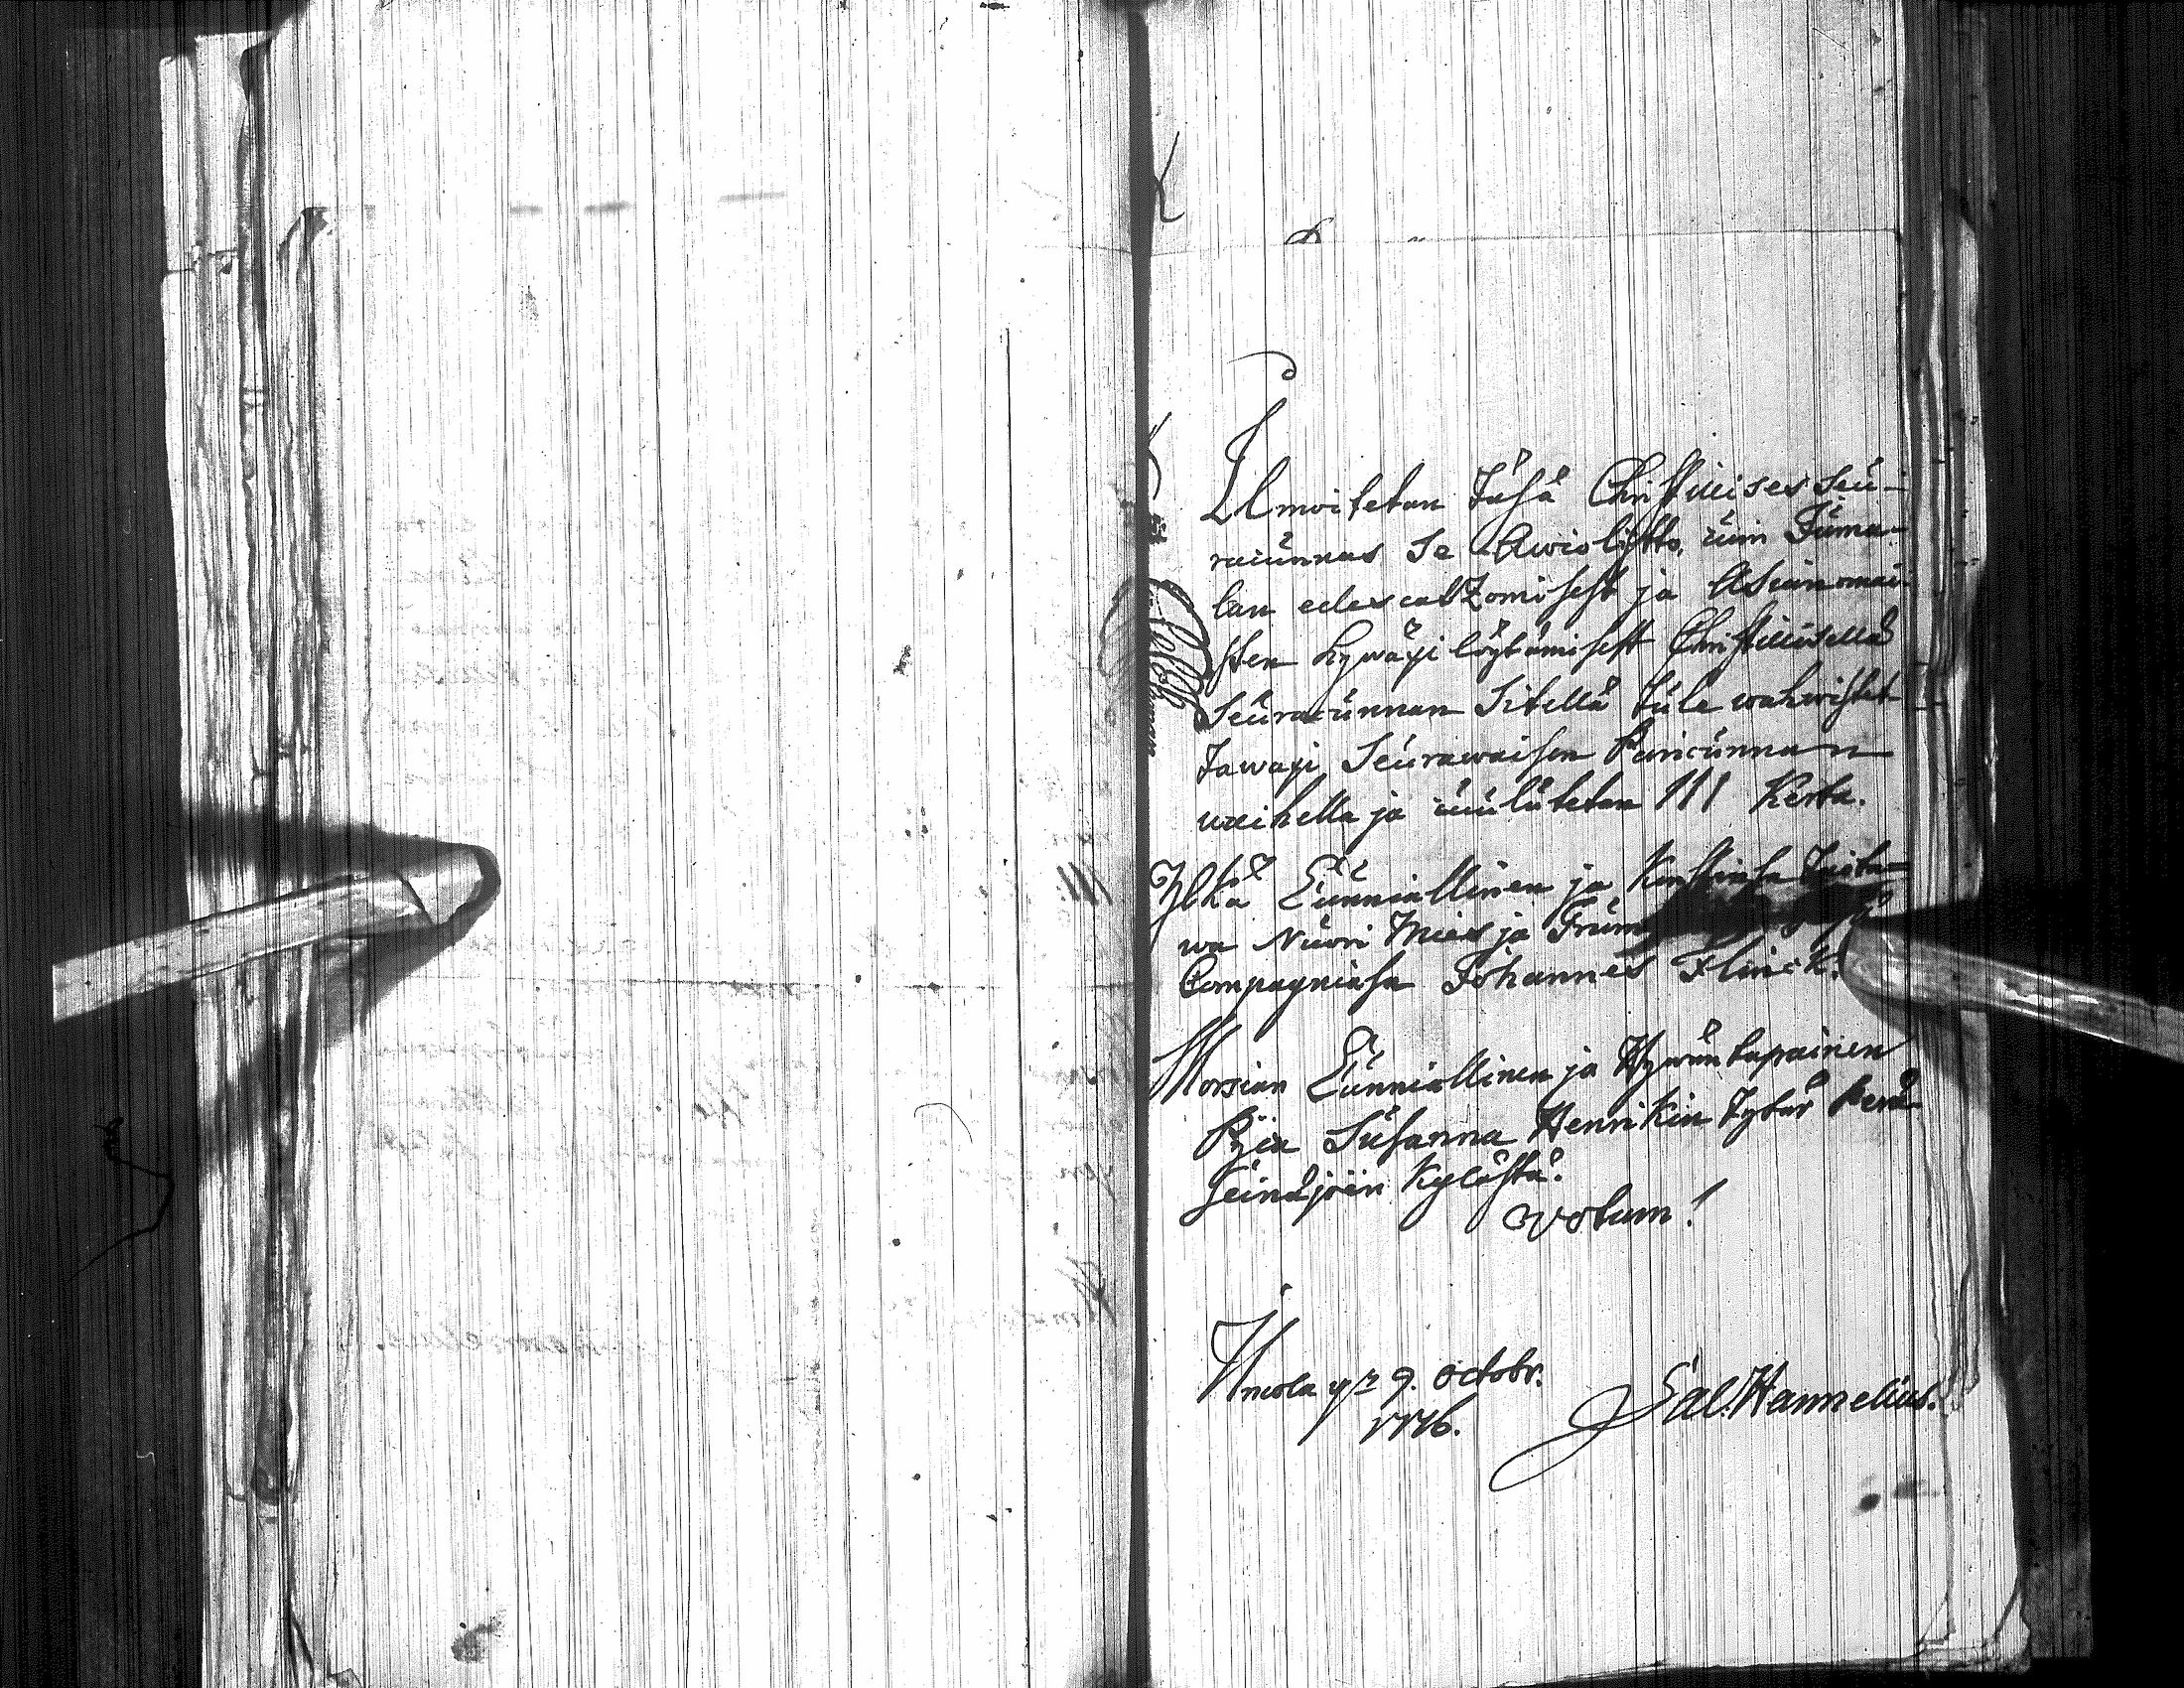 Ilmoitetan Täsä Christilises Seu-
racunnas Se Awioliitto, cuin Juma-
lan edescatzomisest ja Asianomai-
sten hywäxi löytämisest Christilisellä
Seuracunnan Sitellä tule wahwistet-
tawaxi Seurawaisen Pariscunnan
waihella ja cuulutetan III Kerta.
Ylkä Cunniallinen ja Konstinsa Taita-
wa Nuori Mies ja
Compagniasa Johannes Flinck.
Morsian Cunniallinen ja Hywän tapainen
Pijca Susanna Henrikin Tytär Perä
Seinäjoen Kylästä.
Votum!
Ilmola 9. Octobr.
1776.
Sal. Hannelius.